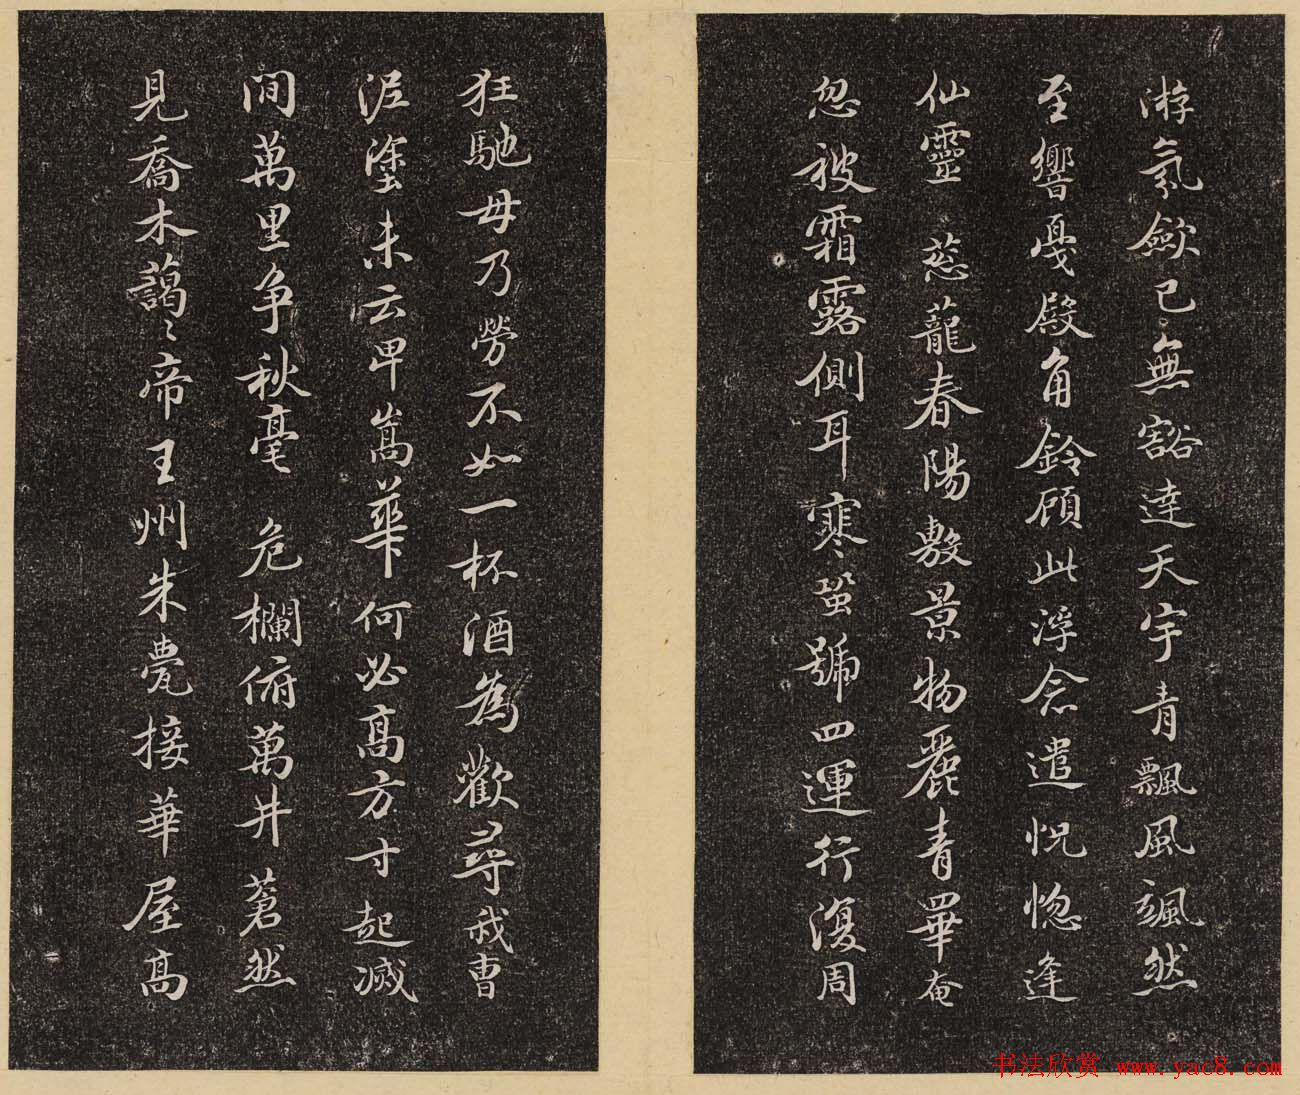 游氛歛已無豁達天宇青飄風颯然
至響戛殿角鈴顧此浮念遣怳惚逢
仙靈 蔥蘢春陽敷景物麗青畢奄
忽被霜露側耳寒蛩號四運行復周
狂馳毋乃勞不如一杯酒為歡尋我曹
泥塗未云卑嵩華何必高方寸起滅
間萬里爭秋毫 危欄俯萬井蒼然
見喬木藹〻帝王州朱甍接華屋高
书法欣赏 www.yac8.com